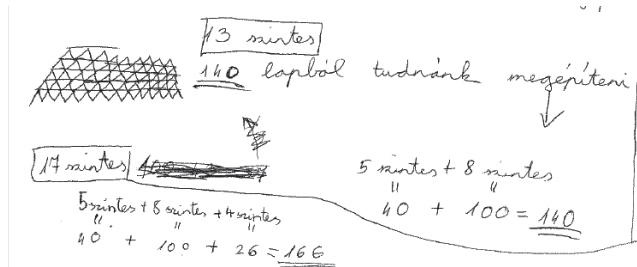 13 szintes
140 lapból tudnánk megépíteni
5 szintes + 8 szintes
40 + 100 = 140
17 szintes
5 szintes + 8 szintes + 4 szintes
40 + 100 + 26 = 166